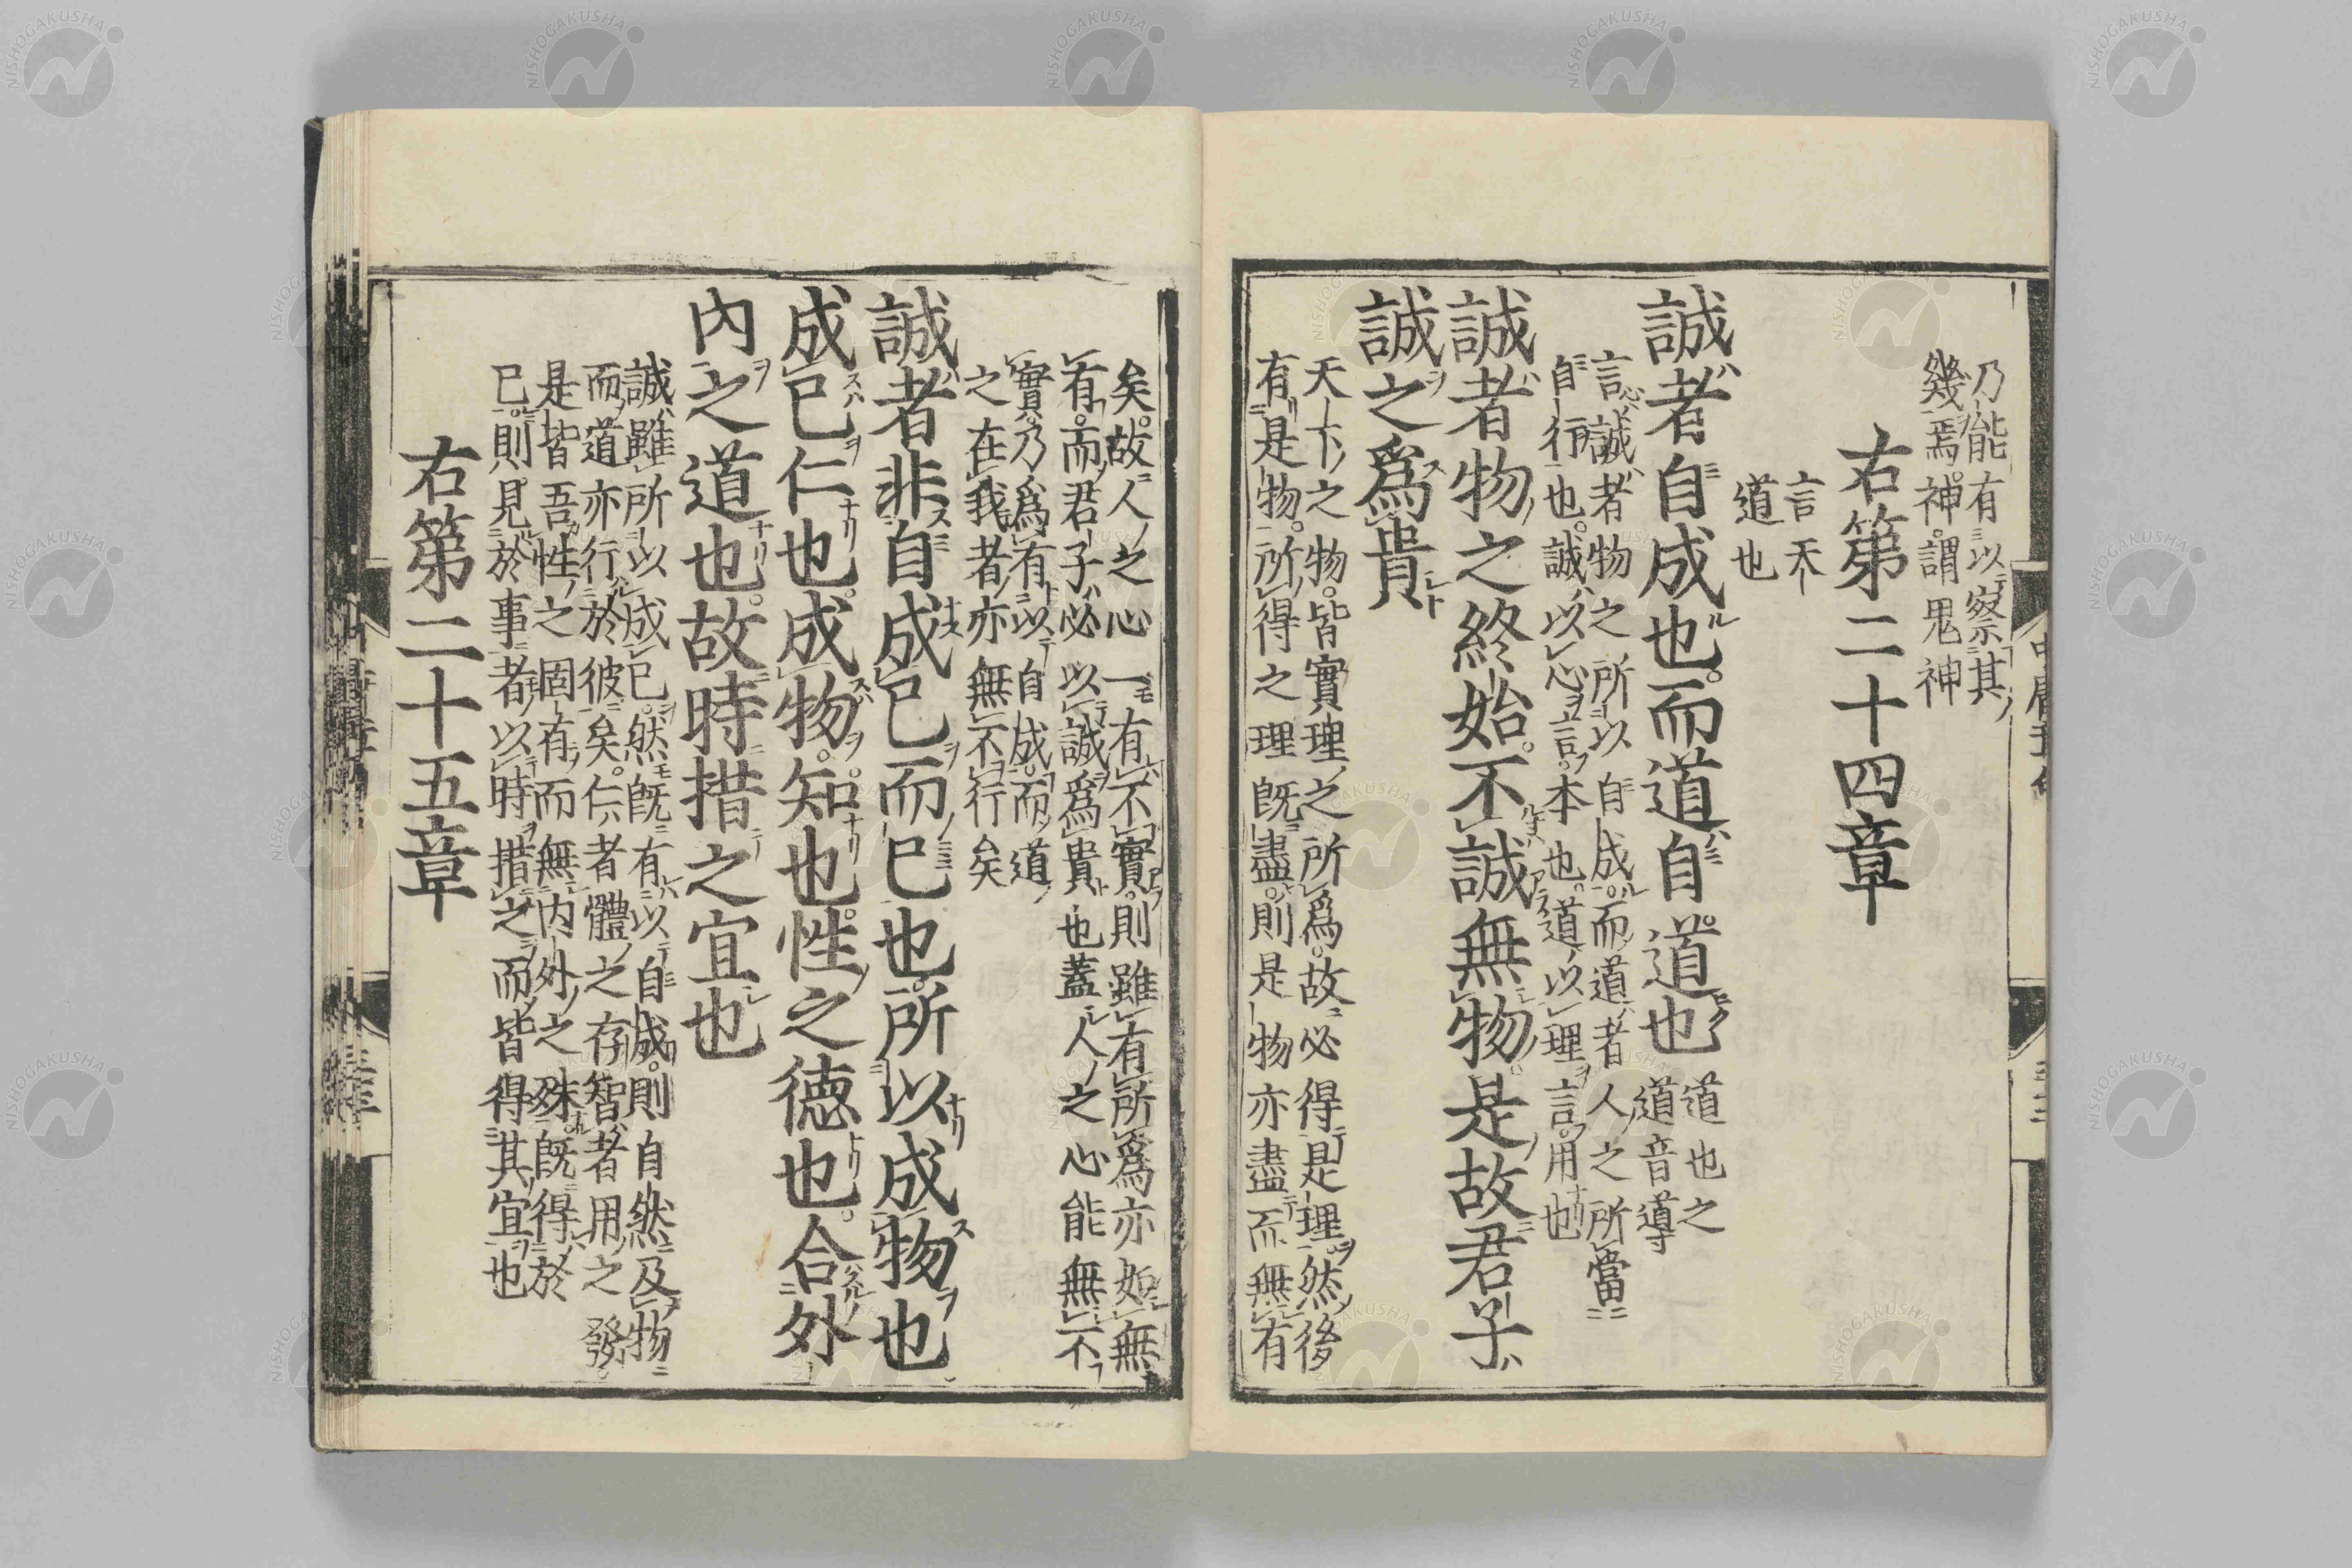 乃能有以察其
幾焉神謂鬼神
右第二十四章
言天
道也
誠者自成也而道自道也
道也之
道音導
言誠者物之所以自成而道者人之所當
自行也誠以心言本也道以理言用也
誠者物之終始不誠無物是故君子
誠之爲貴
天下之物皆實理之所爲故必得是理然後
有是物所得之理既盡則是物亦盡而無有
矣故人之心一有不實則雖有所爲亦如無
有而君子必以誠爲貴也蓋人之心能無不
實乃爲有以自成而道
之在我者亦無不行矣
誠者非自成已而已也所以成物也
成已仁也成物知也性之德也合外
內之道也故時措之宜也
誠雖所以成已然既有以自成則自然及物
而道亦行於彼矣仁者體之存智者用之發
是皆吾性之固有而無内外之殊既得於
已則見於事者以時措之而皆得其宜也
右第二十五章
NISHOGAKUSHA